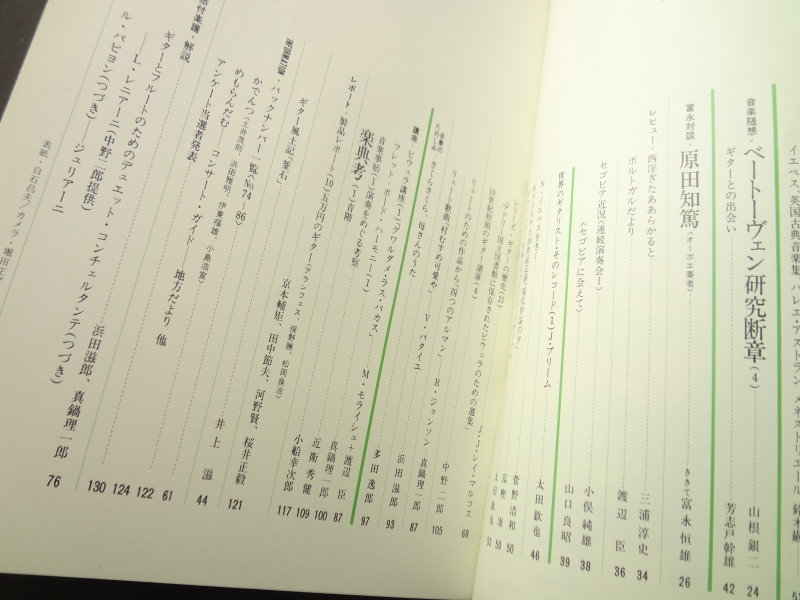 イエペス、英国古典音楽集 バレエ・アストラン メネストリエール
音楽随想・ベートーヴェン研究断章(4) 山根銀二 24
ギターとの出会い 芳志戸幹雄 42
富永対談・原田知篤〈オーボエ奏者〉 ききて 富永恒雄 26
レビュー・西洋ぎたああらかると 三浦淳史 34
ポルトガルだより 渡辺 臣 36
セゴビア近況〈連続演奏会Ⅰ〉 小俣純雄 38
〈セゴビアに会えて〉 山口良昭 39
世界のギタリスト・そのレコード(1) J・ブリーム 太田欽也 46
シリーズ・ギターの歴史(21) 菅野浩和 50
J・J・レイ・マルコス 68
リュートのための作品から「四つのアルマン」 R・ジョンソン 中野二郎 105
リュート歌曲「村むすめ可愛や」 V・バタイユ 真鍋理一郎 87
さくらさくら、母さんのうた 浜田滋郎 93
講座・ビウェラ講座(1)「グワルダメ・ラス・バカス」 多田逸郎 97
フレット・ボード・ハーモニー(1) M・モライシュ+渡辺 臣 87
音楽事始(1) 演奏をめぐる考察 真鍋理一郎 100
楽典考(1) 音階 近衛秀健 109
レポート・製品レポート(10) 五万円のギター(アランフェス、俣野勝、松岡良治) 小船幸次郎 117
京本輔矩、田中節夫、河野賢、桜井正毅 121
ギター風土記「釜石」 井上 滋 44
INFORMATION・バックナンバー一覧(No.74〜86)
かでんつ(土井茂則、浜田雅明、伊東福雄、小島浩宣) 61
めもらんだむ コンサート・ガイド 地方だより 他 122
アンケート当選者発表 124
添付楽譜・解説 浜田滋郎、真鍋理一郎 130
ギターとフルートのためのデュエット・コンチェルタンテ(つづき) 76
——L・レニアーニ(中野二郎提供)
ル・パピヨン(つづき)——ジュリアーニ
表紙・白石昌夫/カメラ・堀田正